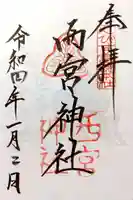 奉拝
西宮神社
令和四年一月二日
西宮
神社